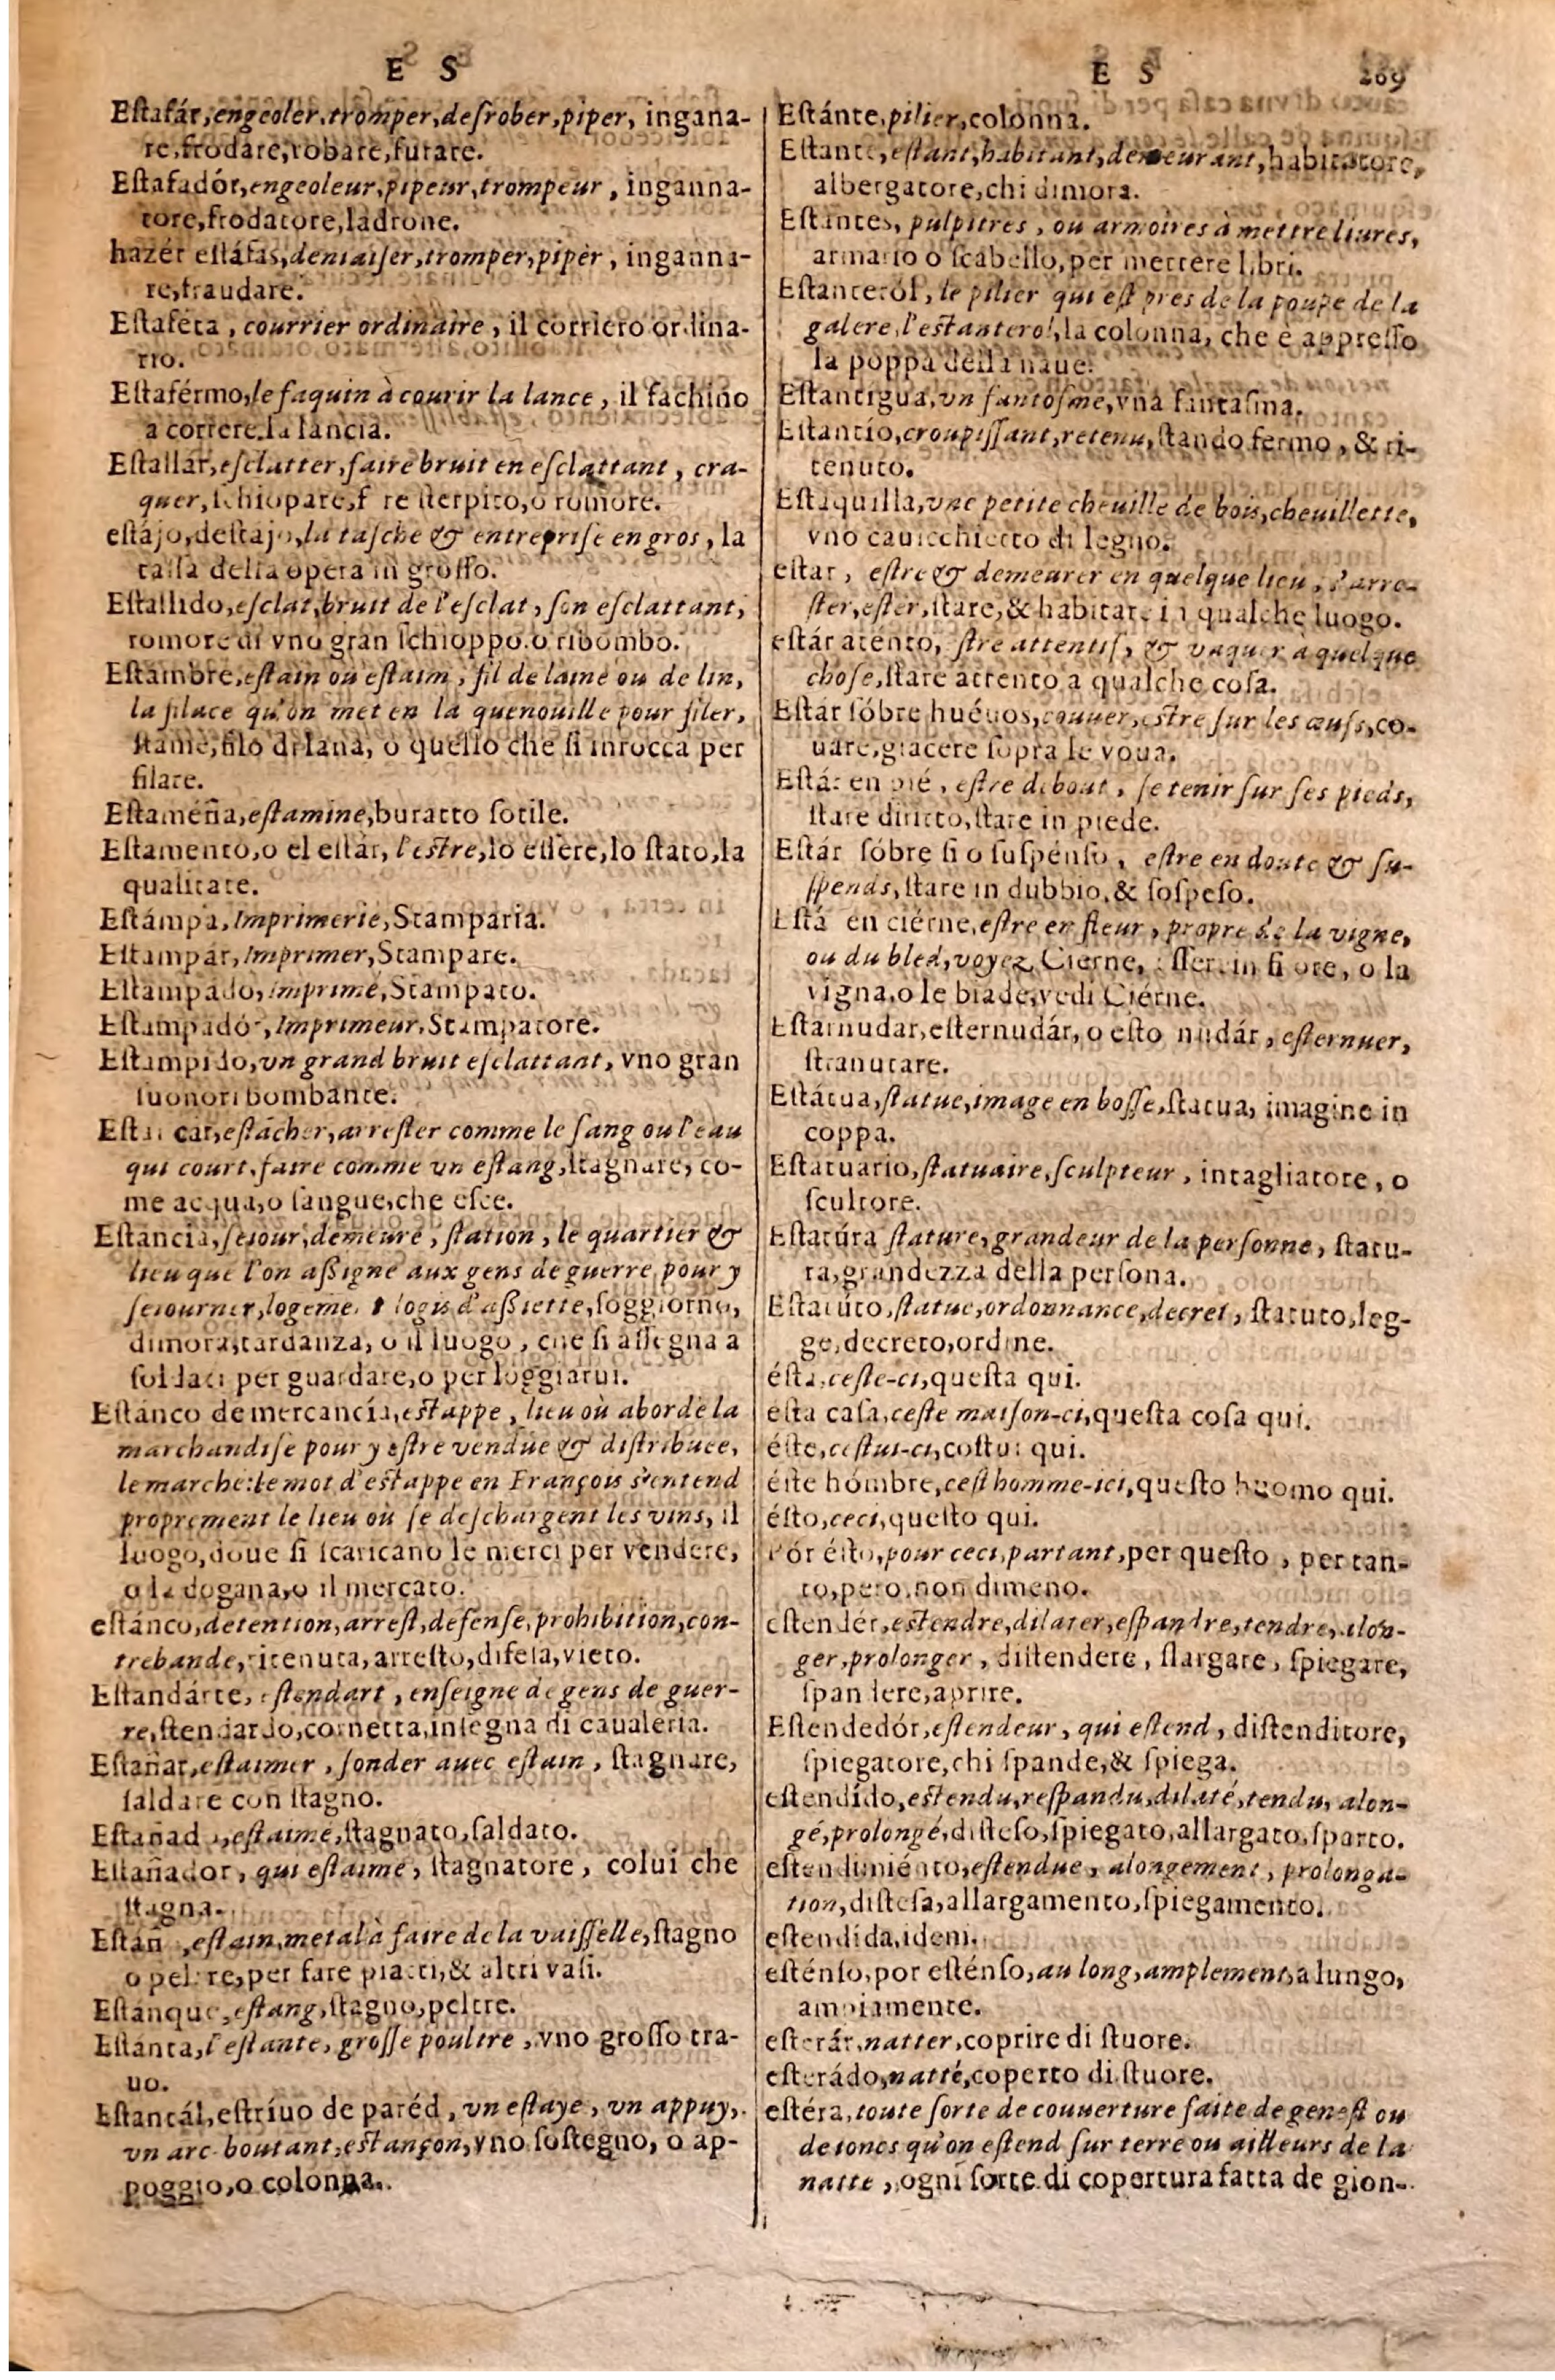 E S
Estafár, engeoler, tromper, desrober, piper, ingana-
re, frodare, robare, furare.
Estafadór, engeoleur, pipeur, trompeur, inganna-
tore, frodatore, ladrone.
hazér estáfas, deniaiser, tromper, pipèr, inganna-
re, fraudare.
Estaféta, courrier ordinaire, il corriero ordina-
rio.
Estaférmo, le faquin à courir la lance, il fachino
a correre la lancia.
Estallár, esclatter, faire bruit en esclattant, cra-
quer, schiopare, f re sterpito, o romore.
estájo, destajo, la tasche & entreprise en gros, la
tassa della opera in grosso.
Estallido, esclat, bruit de l'esclat, son esclattant,
romore di vno gran schioppo o ribombo.
Estambre, estain ou estaim, fil de laine ou de lin,
la filace qu'on met en la quenouille pour filer,
stame, filo di lana, o quello che si inrocca per
filare.
Estaméña, estamine, buratto sotile.
Estamento, o el estár, l'estre, lo essere, lo stato, la
qualitate.
Estámpa, Imprimerie, Stamparia.
Estampár, Imprimer, Stampare.
Estampádo, imprimé, Stampato.
Estampadór, Imprimeur, Stampatore.
Estampido, vn grand bruit esclattant, vno gran
suono ribombante.
Estancar, estácher, arrester comme le sang ou l'eau
qui court, faire comme vn estang, stagnare, co-
me acqua, o sangue, che esce.
Estáncia, seiour, demeure, station, le quartier &
lieu que l'on assigne aux gens de guerre pour y
seiourner, logeme t logis d'assiette, soggiorno,
dimora, tardanza, o il luogo, che si assegna a
soldati per guardare, o per loggiarui.
Estánco de mercancía, estappe, lieu où aborde la
marchandise pour y estre vendüe & distribuee,
le marche: le mot d'estappe en François s'entend
proprement le lieu où se deschargent les vins, il
luogo, doue si scaricano le merci per vendere,
o la dogana, o il mercato.
estánco, detention, arrest, defense, prohibition, con-
trebande, ritenuta, arresto, difesa, vieto.
Estandárte, estendart, enseigne de gens de guer-
re, stendardo, cornetta, insegna di caualeria.
Estañar, estaimer, sonder auec estain, stagnare,
saldare con stagno.
Estañad , estaimé, stagnato, saldato.
Estañador, qui estaime, stagnatore, colui che
stagna.
Estáñ , estain, metal à faire de la vaisselle, stagno
o peltre, per fare piatti, & altri vasi.
Estánque, estang, stagno, peltre.
Estánta, l'estante, grosse poultre, vno grosso tra-
uo.
Estantál, estríuo de paréd, vn estaye, vn appuy,
vn arc-boutant, estançon, vno sostegno, o ap-
poggio, o colonna.
E S 209
Estánte, pilier, colonna.
Estante, estant, habitant, demeurant, habitatore,
albergatore, chi dimora.
Estántes, pulpitres, ou armoires à mettre liures,
armario o scabello, per mettere libri.
Estanteról, le pilier qui est pres de la poupe de la
galere, l'estanterol, la colonna, che è appresso
la poppa della naue.
Estantígua, vn fantosme, vna fantasma.
Estantío, croupissant, retenu, stando fermo, & ri-
tenuto.
Estaquilla, vne petite cheuille de bois, cheuillette,
vno cauicchietto di legno.
estar, estre & demeurer en quelque lieu, s'arre-
ster, ester, stare, & habitare in qualche luogo.
estár aténto, stre attentif, & vaquer à quelque
chose, stare attento a qualche cosa.
Estár sóbre huéuos, couuer, estre sur les œufs, co-
uare, giacere sopra le voua.
Estár en pié, estre debout, se tenir sur ses pieds,
stare diritto, stare in piede.
Estár sóbre si o suspénso, estre en doute & su-
spends, stare in dubbio, & sospeso.
Está en ciérne, estre en fleur, propre de la vigne,
ou du bled, voyez Cierne, essere in fiore, o la
vigna, o le biade, vedi Ciérne.
Estarnudar, esternudár, o esto nudár, esternuer,
stranutare.
Estátua, statue, image en bosse, statua, imagine in
coppa.
Estatuario, statuaire, sculpteur, intagliatore, o
scultore.
Estatúra stature, grandeur de la personne, statu-
ra, grandezza della persona.
Estatúto, statue, ordonnance, decret, statuto, leg-
ge, decreto, ordine.
ésta, ceste-ci, questa qui.
esta casa, ceste maison-ci, questa cosa qui.
éste, cestui-ci, costui qui.
éste hómbre, cest homme-ici, questo huomo qui.
ésto, ceci, questo qui.
Pór ésto, pour ceci, partant, per questo, per tan-
to, pero, non dimeno.
estendér, estendre, dilater, espandre, tendre, alon-
ger, prolonger, distendere, slargare, spiegare,
spandere, aprire.
Estendedór, estendeur, qui estend, distenditore,
spiegatore, chi spande, & spiega.
estendído, estendu, respandu, dilaté, tendu, alon-
gé, prolongé, disteso, spiegato, allargato, sparto.
estendimiénto, estendue, alongement, prolonga-
tion, distesa, allargamento, spiegamento.
estendída, idem.
esténso, por esténso, au long, amplement, a lungo,
ampiamente.
esterár, natter, coprire di stuore.
esterádo, natté, coperto di stuore.
estéra, toute sorte de couuerture faite de genest ou
de ioncs qu'on estend sur terre ou ailleurs de la
natte, ogni sorte di copertura fatta de gion-